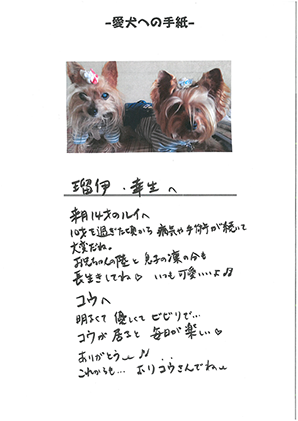 -愛犬への手紙-
瑠伊・幸生へ
来月14才のルイへ
10才を過ぎた頃から 病気や手術が続いて
大変だね。
お兄ちゃんの陸と息子の凜の分も
長生きしてね♡ いつも可愛いいよ♫
コウへ
明るくて 優しくて ビビリで…
コウが 居ると 毎日が 楽しい♡
ありがとう ♫
これからも… おりコウさんでね